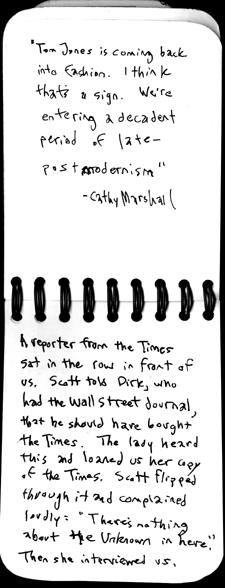 "Tom Jones is coming back
into fashion. I think
that's a sign. We're
entering a decadent
period of late-
postmodernism"
-Cathy Marshall
A reporter from the Times
sat in the row in front of
us. Scott told Dirk, who
had the Wall Street Journal,
that he should have bought
the Times. The lady heard
this and loaned us her copy
of the Times. Scott flipped
through it and complained
loudly: "There's nothing
about the Unknown in here."
Then she interviewed us.